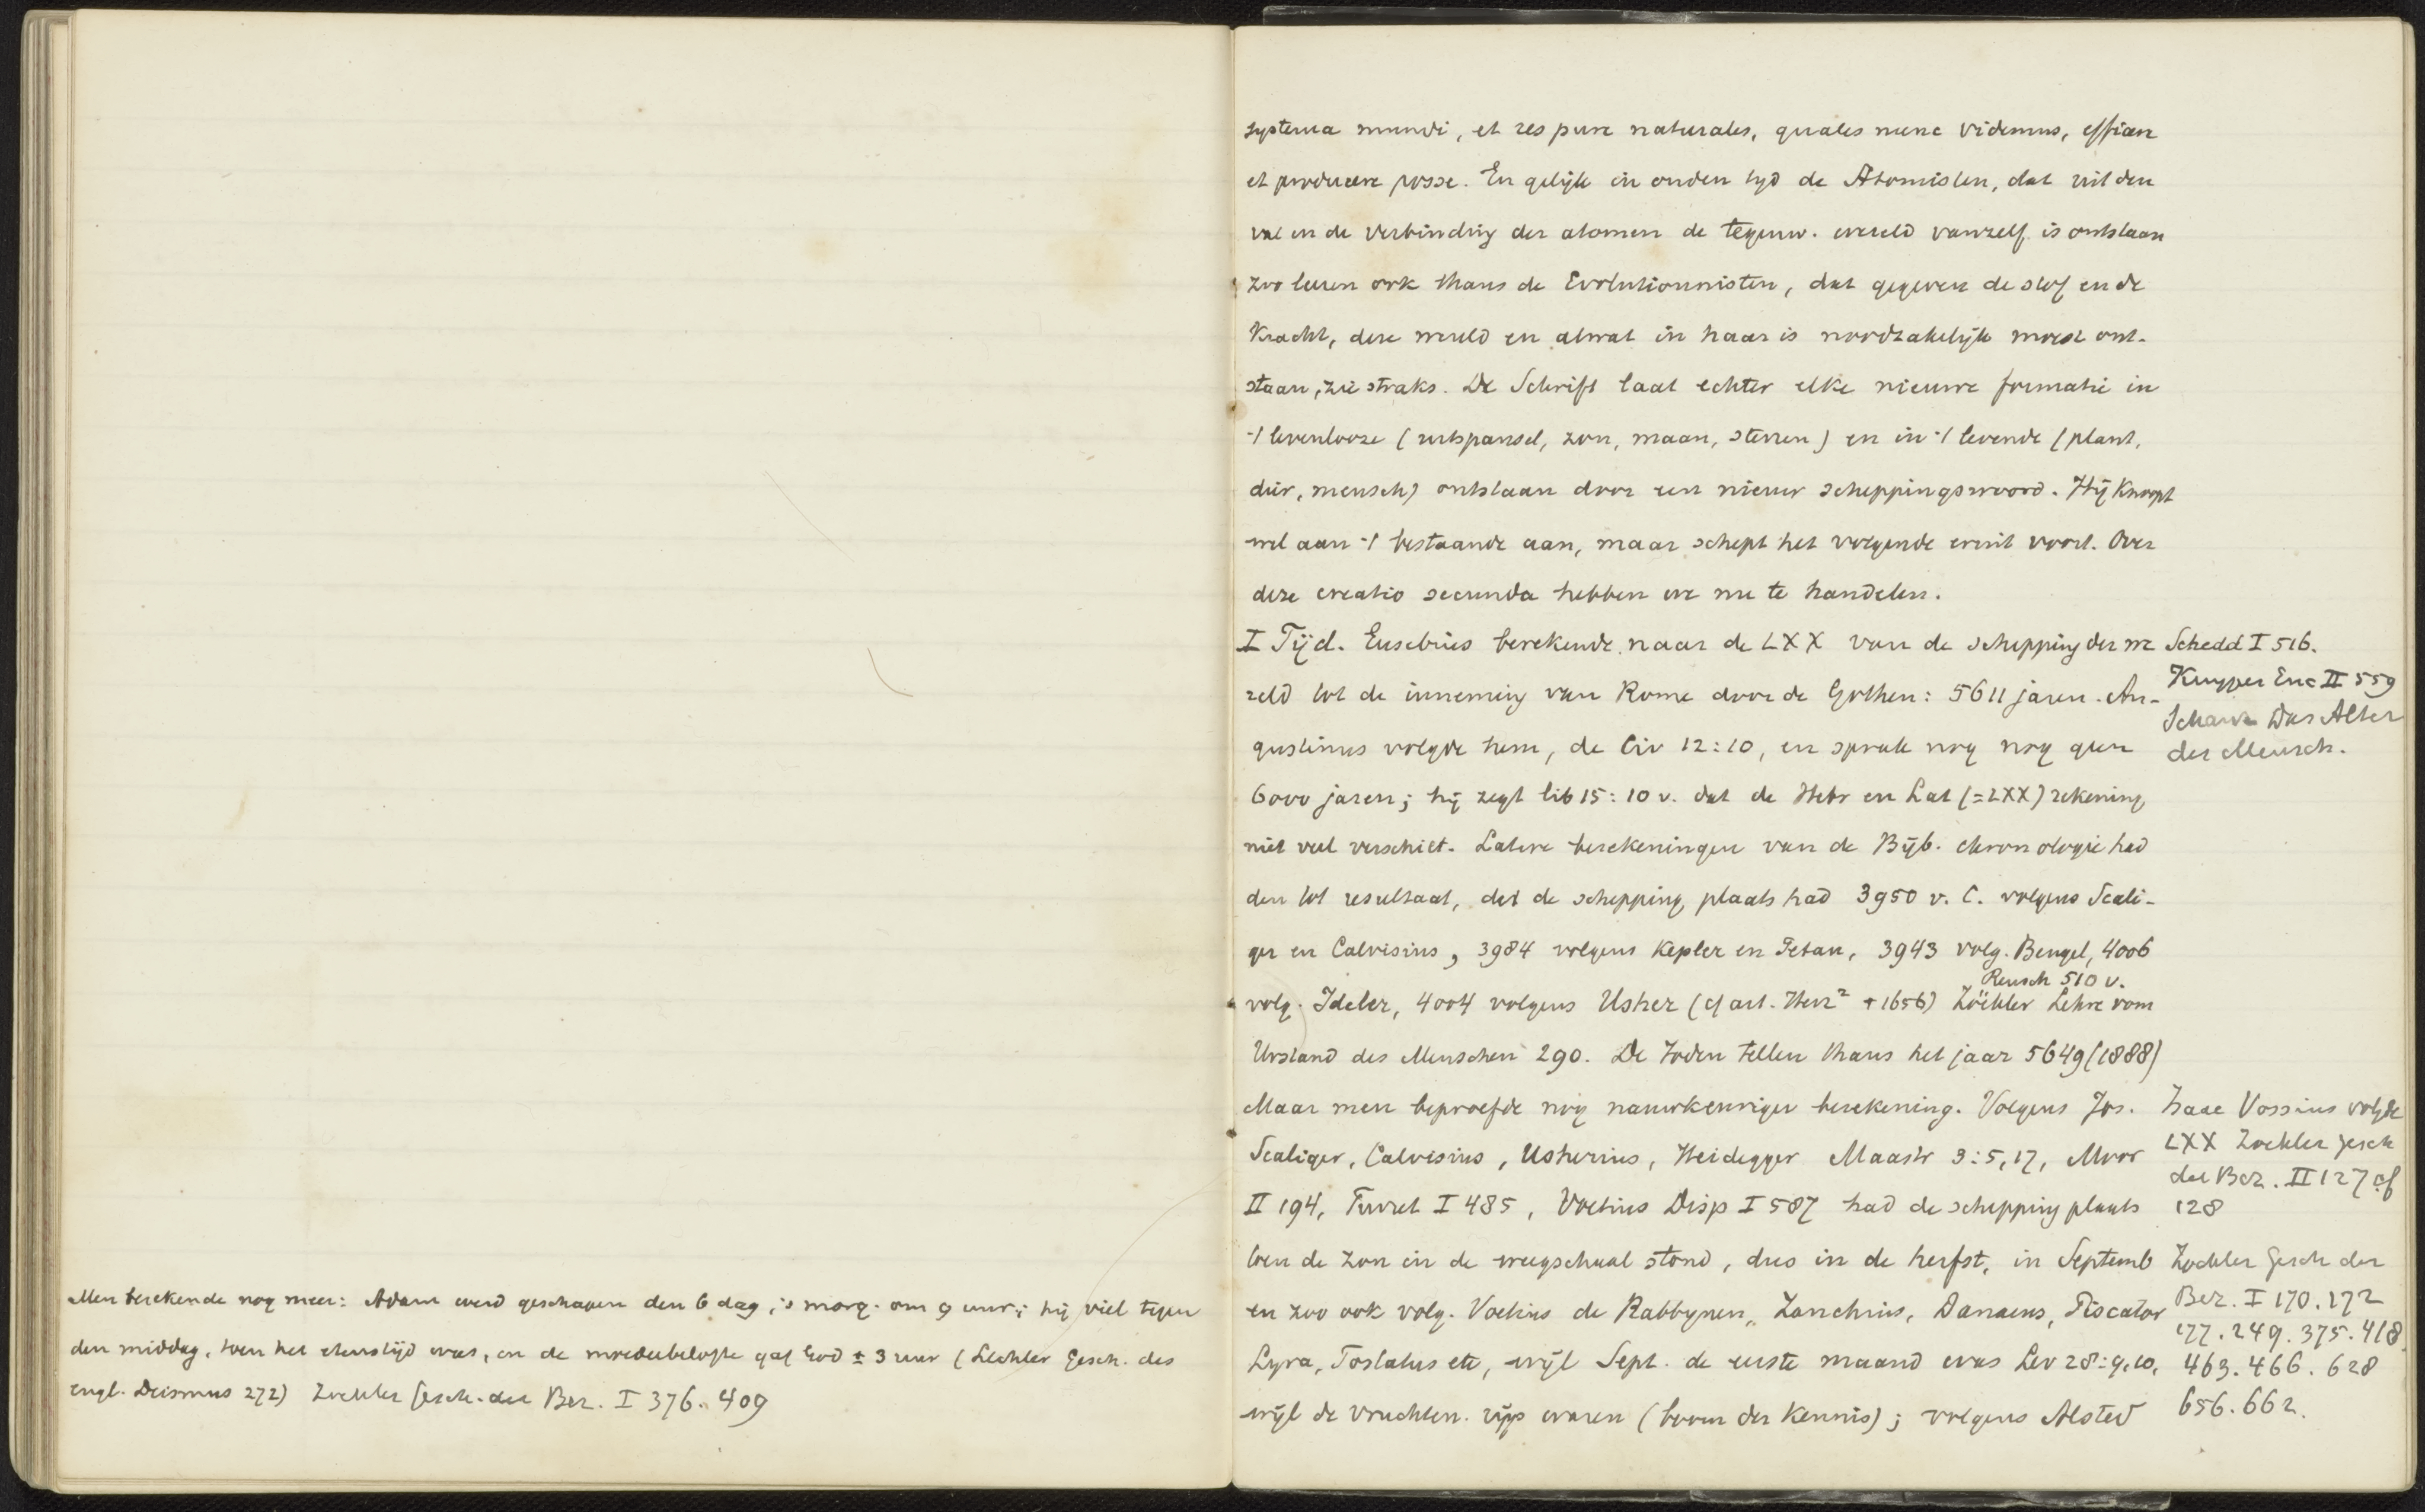 Men berekende nog meer: Adam werd geschapen den 6 dag, 's morg. om 9 uur; hij viel tegen
den middag, toen het etenstijd was, en de moederbelofte gaf God ± 3 uur (Lechler Gesch. des
engl. Deismus 272) Zoekler Gesch. der Bez. I 376. 409
systema mundi, et res pure naturales, quales nunc videmus, efficere
et producere posse. En gelijk in ouden tijd de Atomisten, dat uit den
val en de verbinding der atomen de tegenw. wereld vanzelf is ontstaan
zoo leeren ook thans de Evolutionnisten, dat gegeven de stof en de
Kracht, deze wereld en alwat in haar is noodzakelijk moest ont-
staan, zie straks. De Schrift laat echter elke nieuwe formatie in
-/ levenlooze (uitspansel, zon, maan, sterren) en in -/ levende (plant,
dier, mensch) ontstaan door een nieuw scheppingswoord. Hij knoopt
wel aan -/ bestaande aan, maar schept het volgende eruit voort. Over
deze creatio secunda hebben we nu te handelen.
I Tijd. Eusebius berekende naar de LXX van de schepping der we
reld tot de inneming van Rome door de Gothen: 5611 jaren. Au-
gustinus volgde hem, de Civ 12:10, en sprak nog nog geen
6000 jaren; hij zegt lib 15:10 v. dat de Hebr en Lat (=LXX) rekening
niet veel verschilt. Latere berekeningen van de Bijb. chronologie had
den tot resultaat, dat de schepping plaats had 3950 v. C. volgens Scali-
ger en Calvisius, 3984 volgens Kepler en Petau, 3943 volg. Bengel, 4006
Reusch 510 v.
volg. Ideler, 4004 volgens Usher (cf art. Herz² + 1656) Zöckler Lehre vom
Urstand des Menschen 290. De Joden tellen thans het jaar 5649 (1888)
Maar men beproefde nog nauwkeuriger berekening. Volgens Jos.
Scaliger, Calvisius, Usherius, Heidegger Maastr 3:5,17, Moor
II 194, Turret I 485, Voetius Disp I 587 had de schepping plaats
toen de zon in de weegschaal stond, dus in de herfst, in Septemb
en zoo ook volg. Voetius de Rabbynen, Zanchius, Danaeus, Piscator
Lyra, Tostatus etc, wijl Sept. de eerste maand was Lev 28:9,10,
wijl de vruchten rijp waren (boom der Kennis); volgens Alsted
Schedd I 516.
Kuyper Enc II 559
Schanz Das Alter
des Mensch.
Isaac Vossius volgde
LXX Zoekler Gesch
der Bez. II 127 cf
128
Zoekler Gesch der
Bez. I 170. 172
177. 249. 375. 418
463. 466. 628
656. 662.